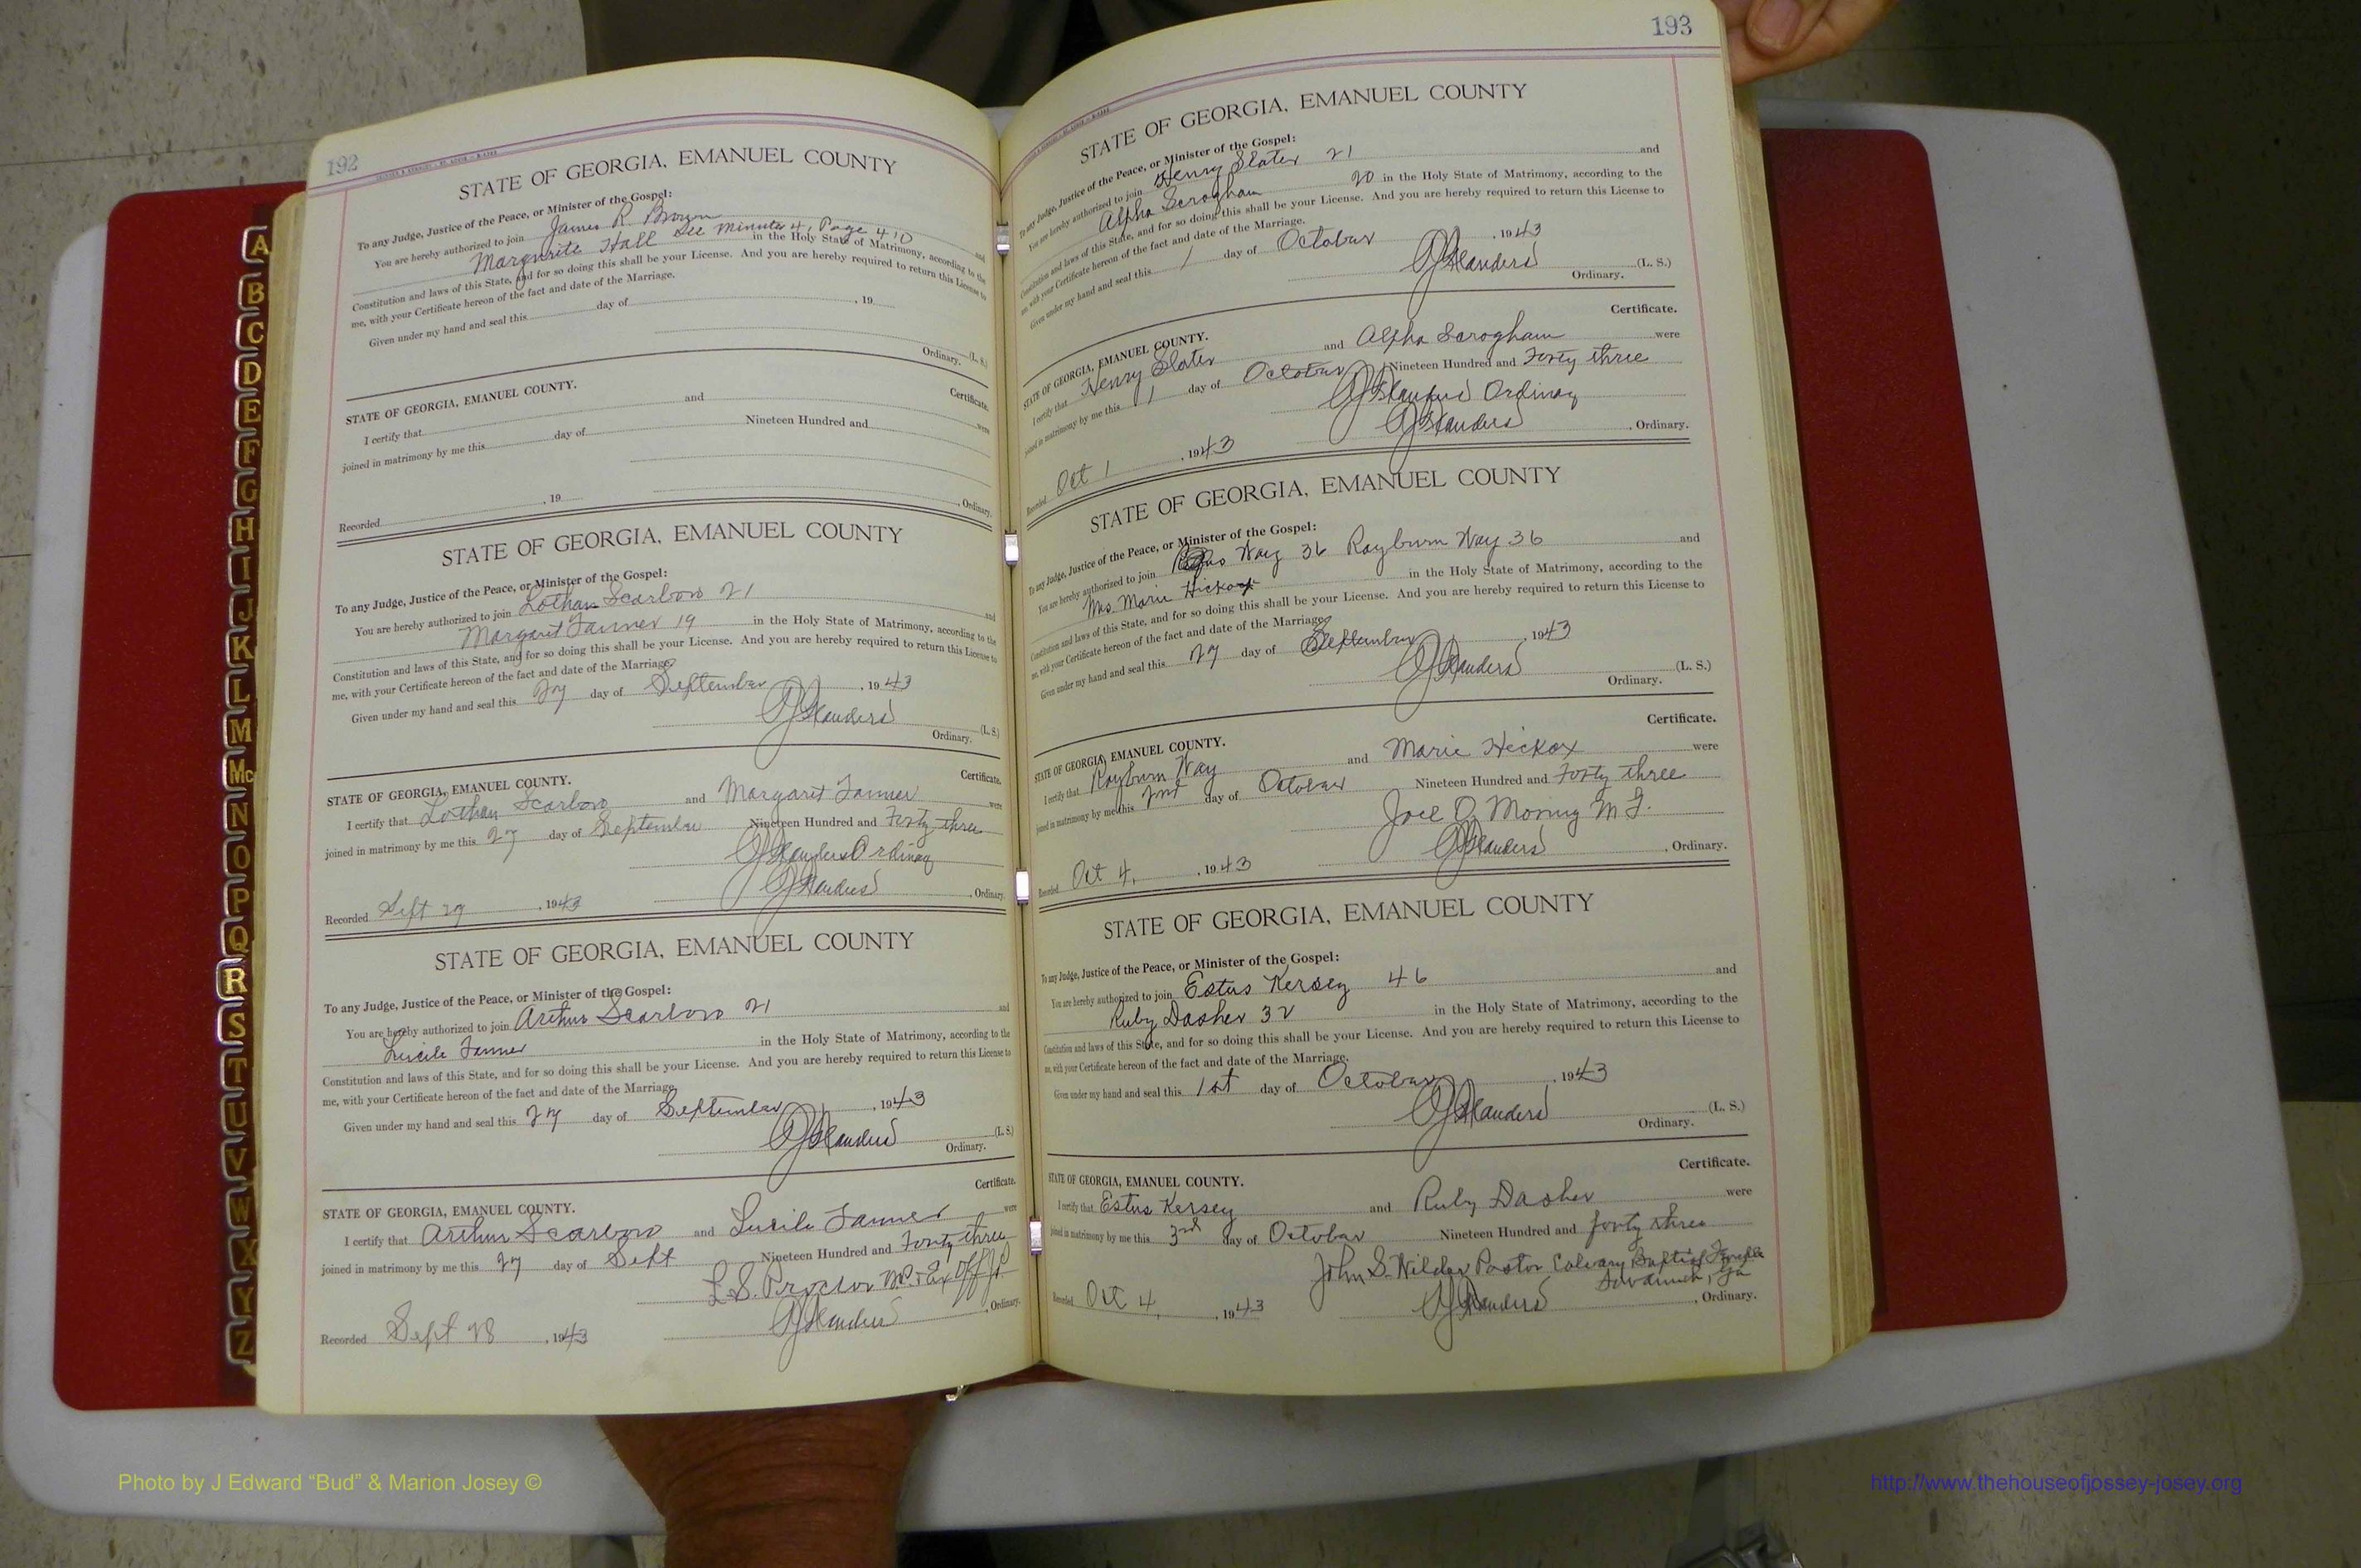 192
STATE OF GEORGIA, EMANUEL COUNTY
To any Judge, Justice of the Peace, or Minister of the Gospel:
You are hereby authorized to join James R Brown and
Margurite Hall See Minute 4, Page 410 in the Holy State of Matrimony, according to the
Constitution and laws of this State, and for so doing this shall be your License. And you are hereby required to return this License to
me, with your Certificate hereon of the fact and date of the Marriage.
Given under my hand and seal this day of , 19
(L. S.)
Ordinary.
Certificate.
STATE OF GEORGIA, EMANUEL COUNTY.
I certify that and were
joined in matrimony by me this day of Nineteen Hundred and
Recorded , 19 , Ordinary.
STATE OF GEORGIA, EMANUEL COUNTY
To any Judge, Justice of the Peace, or Minister of the Gospel:
You are hereby authorized to join Lothan Scarboro 21 and
Margaret Tanner 19 in the Holy State of Matrimony, according to the
Constitution and laws of this State, and for so doing this shall be your License. And you are hereby required to return this License to
me, with your Certificate hereon of the fact and date of the Marriage.
Given under my hand and seal this 27 day of September , 1943
Flanders (L. S.)
Ordinary.
Certificate.
STATE OF GEORGIA, EMANUEL COUNTY.
I certify that Lothan Scarboro and Margaret Tanner were
joined in matrimony by me this 27 day of September Nineteen Hundred and Forty three
Flanders Ordinary
Recorded Sept 29 , 1943 Flanders , Ordinary.
STATE OF GEORGIA, EMANUEL COUNTY
To any Judge, Justice of the Peace, or Minister of the Gospel:
You are hereby authorized to join Arthur Scarboro 21 and
Lucile Tanner in the Holy State of Matrimony, according to the
Constitution and laws of this State, and for so doing this shall be your License. And you are hereby required to return this License to
me, with your Certificate hereon of the fact and date of the Marriage.
Given under my hand and seal this 27 day of September , 1943
Flanders (L. S.)
Ordinary.
Certificate.
STATE OF GEORGIA, EMANUEL COUNTY.
I certify that Arthur Scarboro and Lucile Tanner were
joined in matrimony by me this 27 day of Sept Nineteen Hundred and Forty three
L. S. Proctor N.P. & Ex Off J.P.
Recorded Sept 28 , 1943 Flanders , Ordinary.
193
STATE OF GEORGIA, EMANUEL COUNTY
To any Judge, Justice of the Peace, or Minister of the Gospel:
You are hereby authorized to join Henry Slater 21 and
Alpha Scrogham 20 in the Holy State of Matrimony, according to the
Constitution and laws of this State, and for so doing this shall be your License. And you are hereby required to return this License to
me, with your Certificate hereon of the fact and date of the Marriage.
Given under my hand and seal this 1 day of October , 1943
Flanders (L. S.)
Ordinary.
Certificate.
STATE OF GEORGIA, EMANUEL COUNTY.
I certify that Henry Slater and Alpha Scrogham were
joined in matrimony by me this 1 day of October Nineteen Hundred and Forty three
Flanders Ordinary
Recorded Oct 1 , 1943 Flanders , Ordinary.
STATE OF GEORGIA, EMANUEL COUNTY
To any Judge, Justice of the Peace, or Minister of the Gospel:
You are hereby authorized to join Way 36 Rayburn Way 36 and
Mrs. Marie Hickox in the Holy State of Matrimony, according to the
Constitution and laws of this State, and for so doing this shall be your License. And you are hereby required to return this License to
me, with your Certificate hereon of the fact and date of the Marriage.
Given under my hand and seal this 27 day of September , 1943
Flanders (L. S.)
Ordinary.
Certificate.
STATE OF GEORGIA, EMANUEL COUNTY.
I certify that Rayburn Way and Marie Hickox were
joined in matrimony by me this 2nd day of October Nineteen Hundred and Forty three
Joel O. Moring M G.
Recorded Oct 4, , 1943 Flanders , Ordinary.
STATE OF GEORGIA, EMANUEL COUNTY
To any Judge, Justice of the Peace, or Minister of the Gospel:
You are hereby authorized to join Estus Kersey 46 and
Ruby Dasher 32 in the Holy State of Matrimony, according to the
Constitution and laws of this State, and for so doing this shall be your License. And you are hereby required to return this License to
me, with your Certificate hereon of the fact and date of the Marriage.
Given under my hand and seal this 1st day of October , 1943
Flanders (L. S.)
Ordinary.
Certificate.
STATE OF GEORGIA, EMANUEL COUNTY.
I certify that Estus Kersey and Ruby Dasher were
joined in matrimony by me this 3rd day of October Nineteen Hundred and forty three
John S. Wilder Pastor Calvary Baptist Temple
Savannah, Ga
Recorded Oct 4, , 1943 Flanders , Ordinary.
A
B
C
D
E
F
G
H
I
J
K
L
M
Mc
N
O
P
Q
R
S
T
U
V
W
X
Y
Z
Photo by J Edward “Bud” & Marion Josey ©
http://www.thehouseofjossey-josey.org